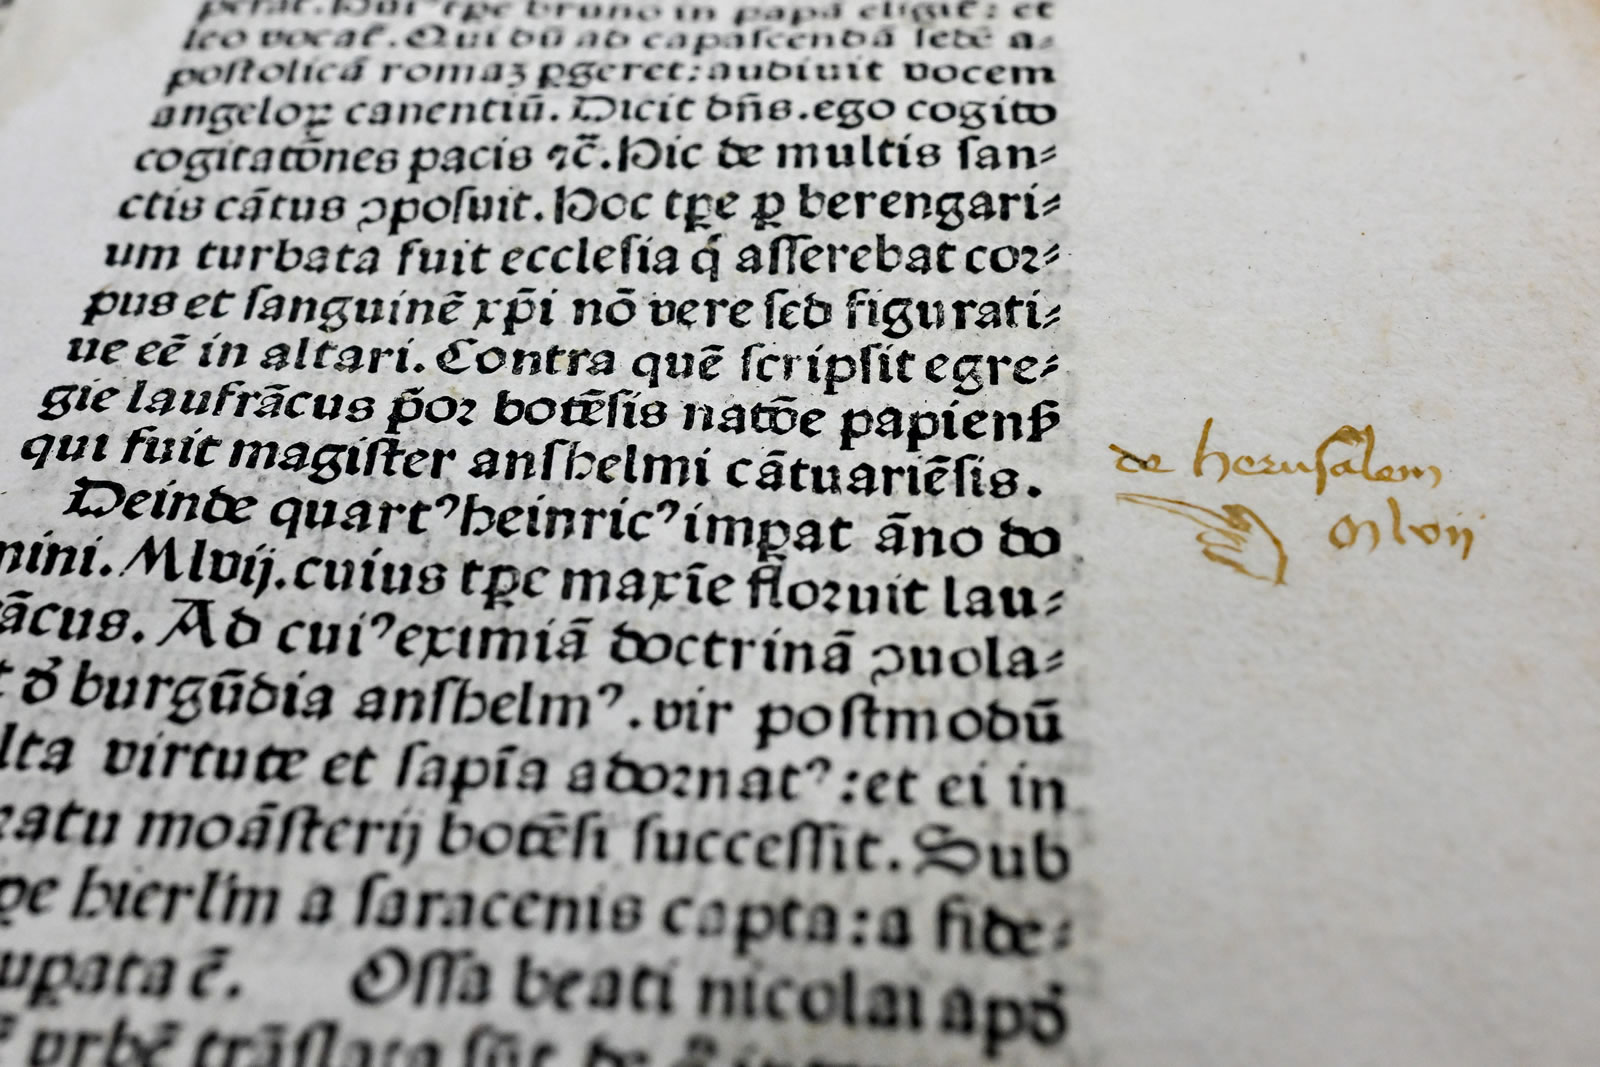 perat. Hui᷒ tꝑe bruno in papā eligit̄: et
leo vocat̄. Qui dū ad capaſcendā ſedē a⸗
poſtolicā romaꝫ ꝑgeret: audiuit vocem
angeloꝝ canentiū. Dicit dn̄s. ego cogito
cogitatōnes pacis ⁊c̄. Hic de multis ſan⸗
ctis cātus ↄpoſuit. Hoc tꝑe ꝑ berengari⸗
um turbata fuit eccleſia q́ aſſerebat coꝛ⸗
pus et ſanguinē xp̄i nō vere ſed figurati⸗
ue eē in altari. Contra quē ſcripſit egre⸗
gie laufrācus p̄oꝛ botēſis natōe papienẜ
qui fuit magiſter anſhelmi cātuariēſis.
de heruſalem
Deinde quartꝰ heinricꝰ imꝑat āno do
Mlvij
mini. Mlvij. cuius tꝑe maxīe floꝛuit lau⸗
ācus. Ad cuiꝰ eximiā doctrinā ↄuola⸗
t ꝺ̄ burgūdia anſhelmꝰ. vir poſtmodū
lta virtute et ſapīa adoꝛnatꝰ: et ei in
ꝛatu moāſterij botēſi ſucceſſit. Sub
ꝑe hierłm a ſaracenis capta: a fide⸗
uꝑata ē. Oſſa beati nicolai apd̄
vrbē trāſlata ſūt de